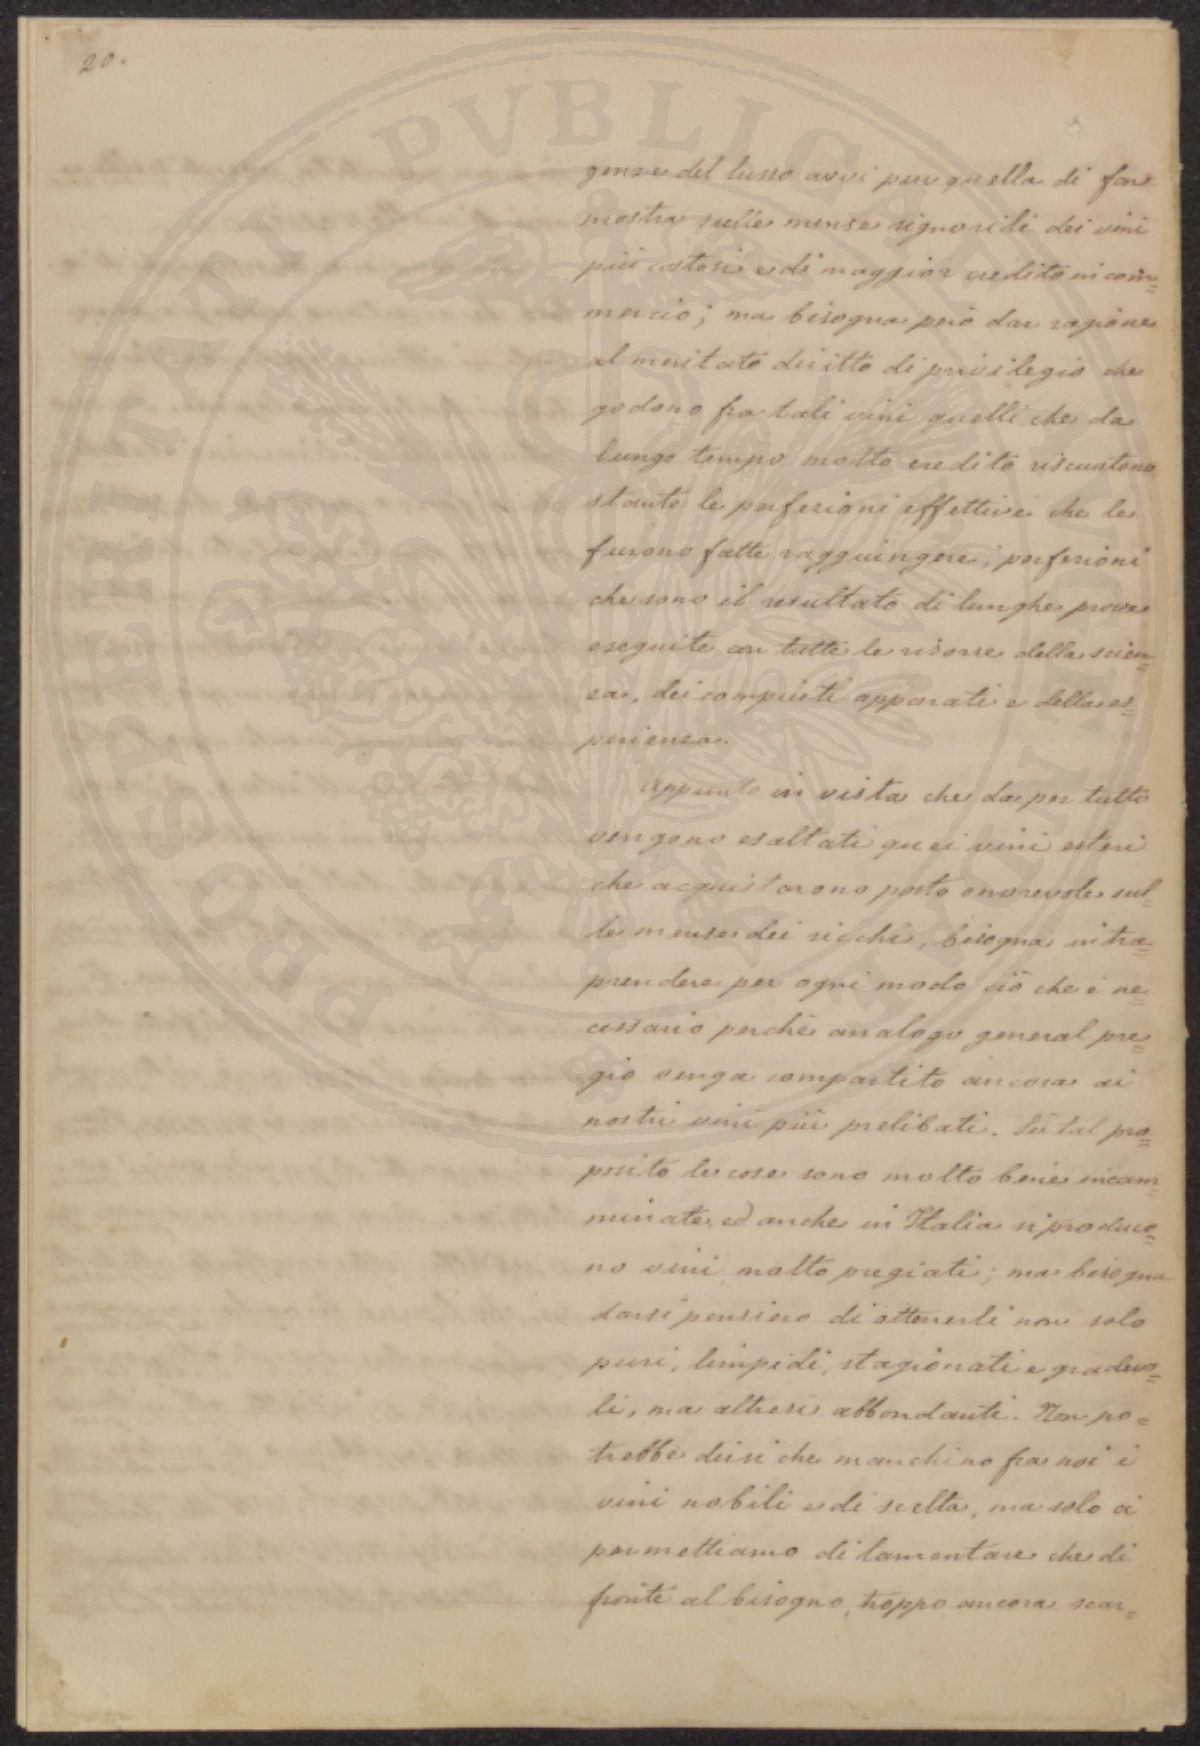 20.
genze del lusso avvi pur quella di far
mostra sulle mense signorili dei vini
più costosi e di maggior credito in com=
mercio; ma bisogna però dar ragione
al meritato diritto di privilegio che
godono fra tali vini quelli che da
lungo tempo molto credito riscuotono
stante le perfezioni effettive che le
furono fatte raggiungere; perfezioni
che sono il resultato di lunghe prove
eseguite con tutte le risorse della scien=
za, dei compiuti apparati e della es=
perienza.
Appunto in vista che da per tutto
vengono esaltati quei vini esteri
che acquistarono posto onorevole sul=
le mense dei ricchi, bisogna intra=
prendere per ogni modo ciò che è ne=
cessario perchè analogo general pre=
gio venga compartito ancora ai
nostri vini più prelibati. Su tal pro=
posito le cose sono molto bene incam=
minate, ed anche in Italia si produco=
no vini molto pregiati; ma bisogna
darsi pensiero di ottenerli non solo
puri, limpidi, stagionati e gradevo=
li, ma altresì abbondanti. Non po=
trebbe dirsi che manchino fra noi i
vini nobili e di scelta, ma solo ci
permettiamo di lamentare che di
fronte al bisogno, troppo ancora scar=
PROSPERITATI PVBLICAE AVGENDAE